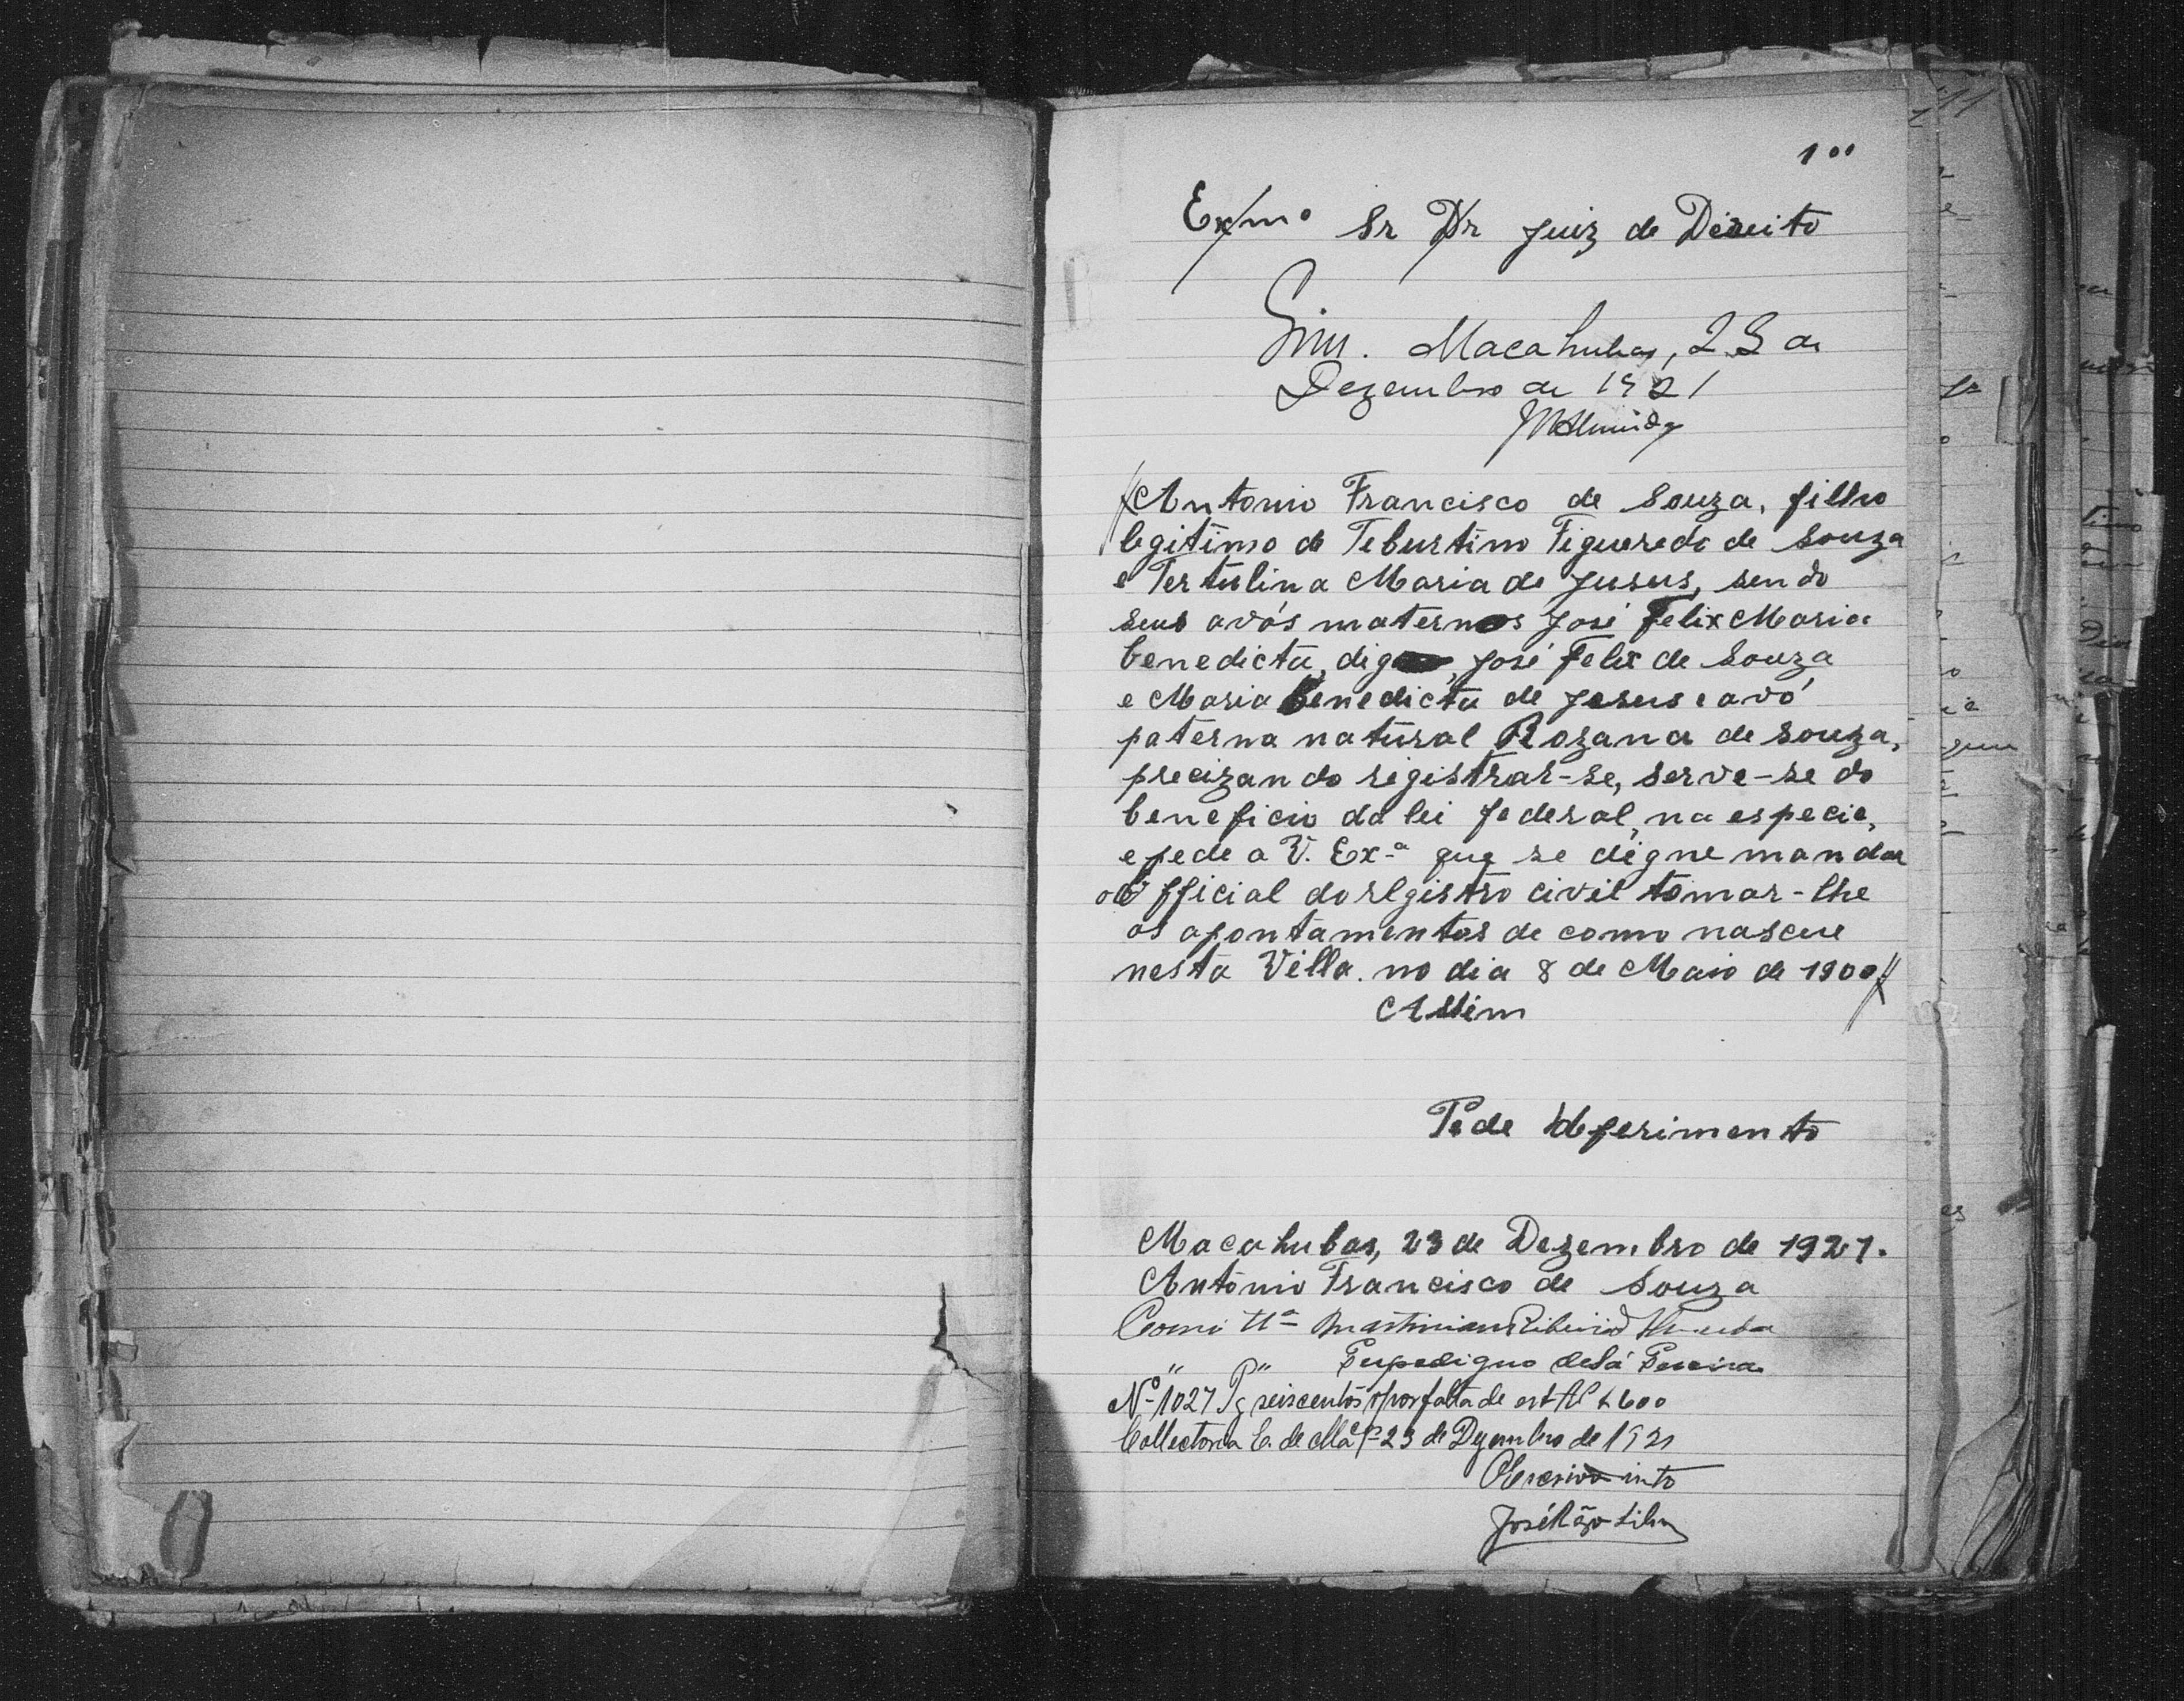 100
Exmº Sr Dr Juiz de Direito
Sim. Macahubas, 23 de
Dezembro de 1921
Antonio Francisco de Souza, filho
legitimo de Teburtino Figueredo de Souza
e Tertulina Maria de Jusus, sendo
seus avós maternos José Felix Maria
benedicta, digo, José Felix de Souza
e Maria Benedicta de Jesus e avó
paterna natural Rozana de Souza,
precizando registrar-se, serve-se do
beneficio da lei federal, na especie,
e pede a V. Exª que se digne mandar
o official do registro civil tomar-lhe
os apontamentos de como nasceu
nesta Villa. no dia 8 de Maio de 1900
Assim
Pede deferimento
Macahubas, 23 de Dezembro de 1921.
Antonio Francisco de Souza
Como Tª Ribeiro
" " de Sá Pereira
Nº 1027 Pg seiscentos por falta de est
600
Collectoria E. de 23 de Dezembro de 1921
José